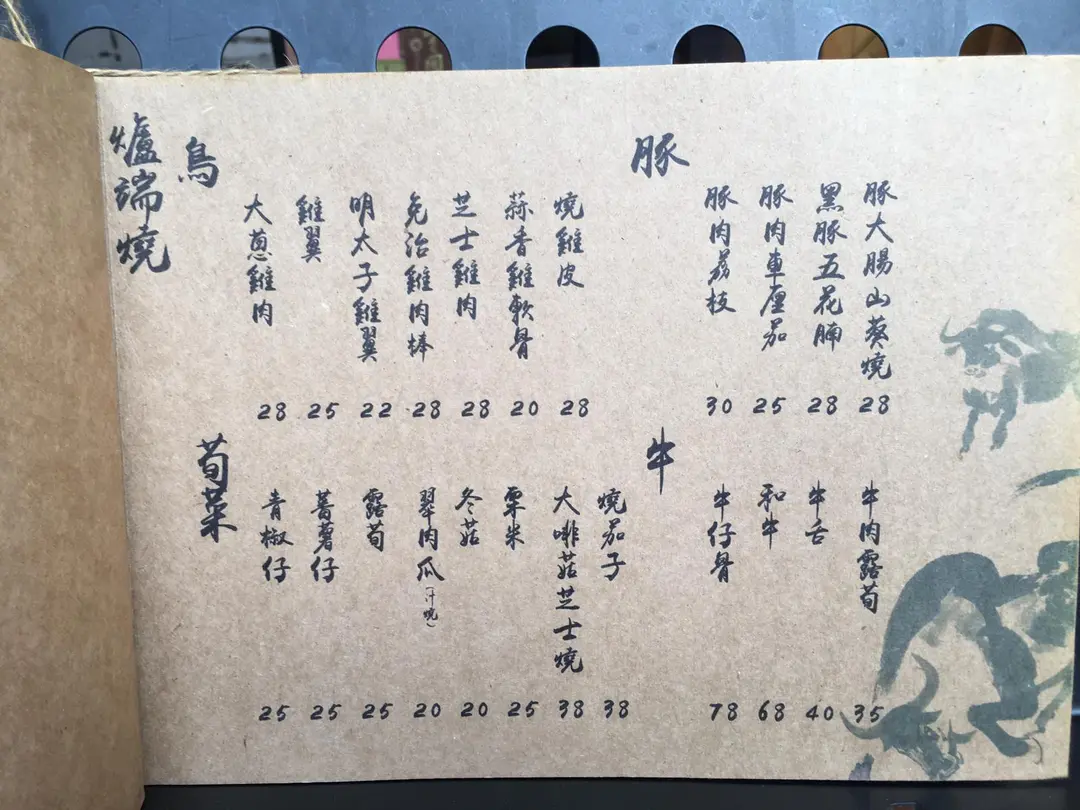 爐端燒
鳥
大蔥雞肉 28
雞翼 25
明太子雞翼 22
免治雞肉棒 28
芝士雞肉 28
蒜香雞軟骨 20
燒雞皮 28
豚
豚肉荔枝 30
豚肉車厘茄 25
黑豚五花腩 28
豚大腸山葵燒 28
荀菜
青椒仔 25
蕃薯仔 25
露荀 25
翠肉瓜(汁燒) 20
冬菇 20
粟米 25
大啡菇芝士燒 38
燒茄子 38
牛
牛仔骨 78
和牛 68
牛舌 40
牛肉露荀 35